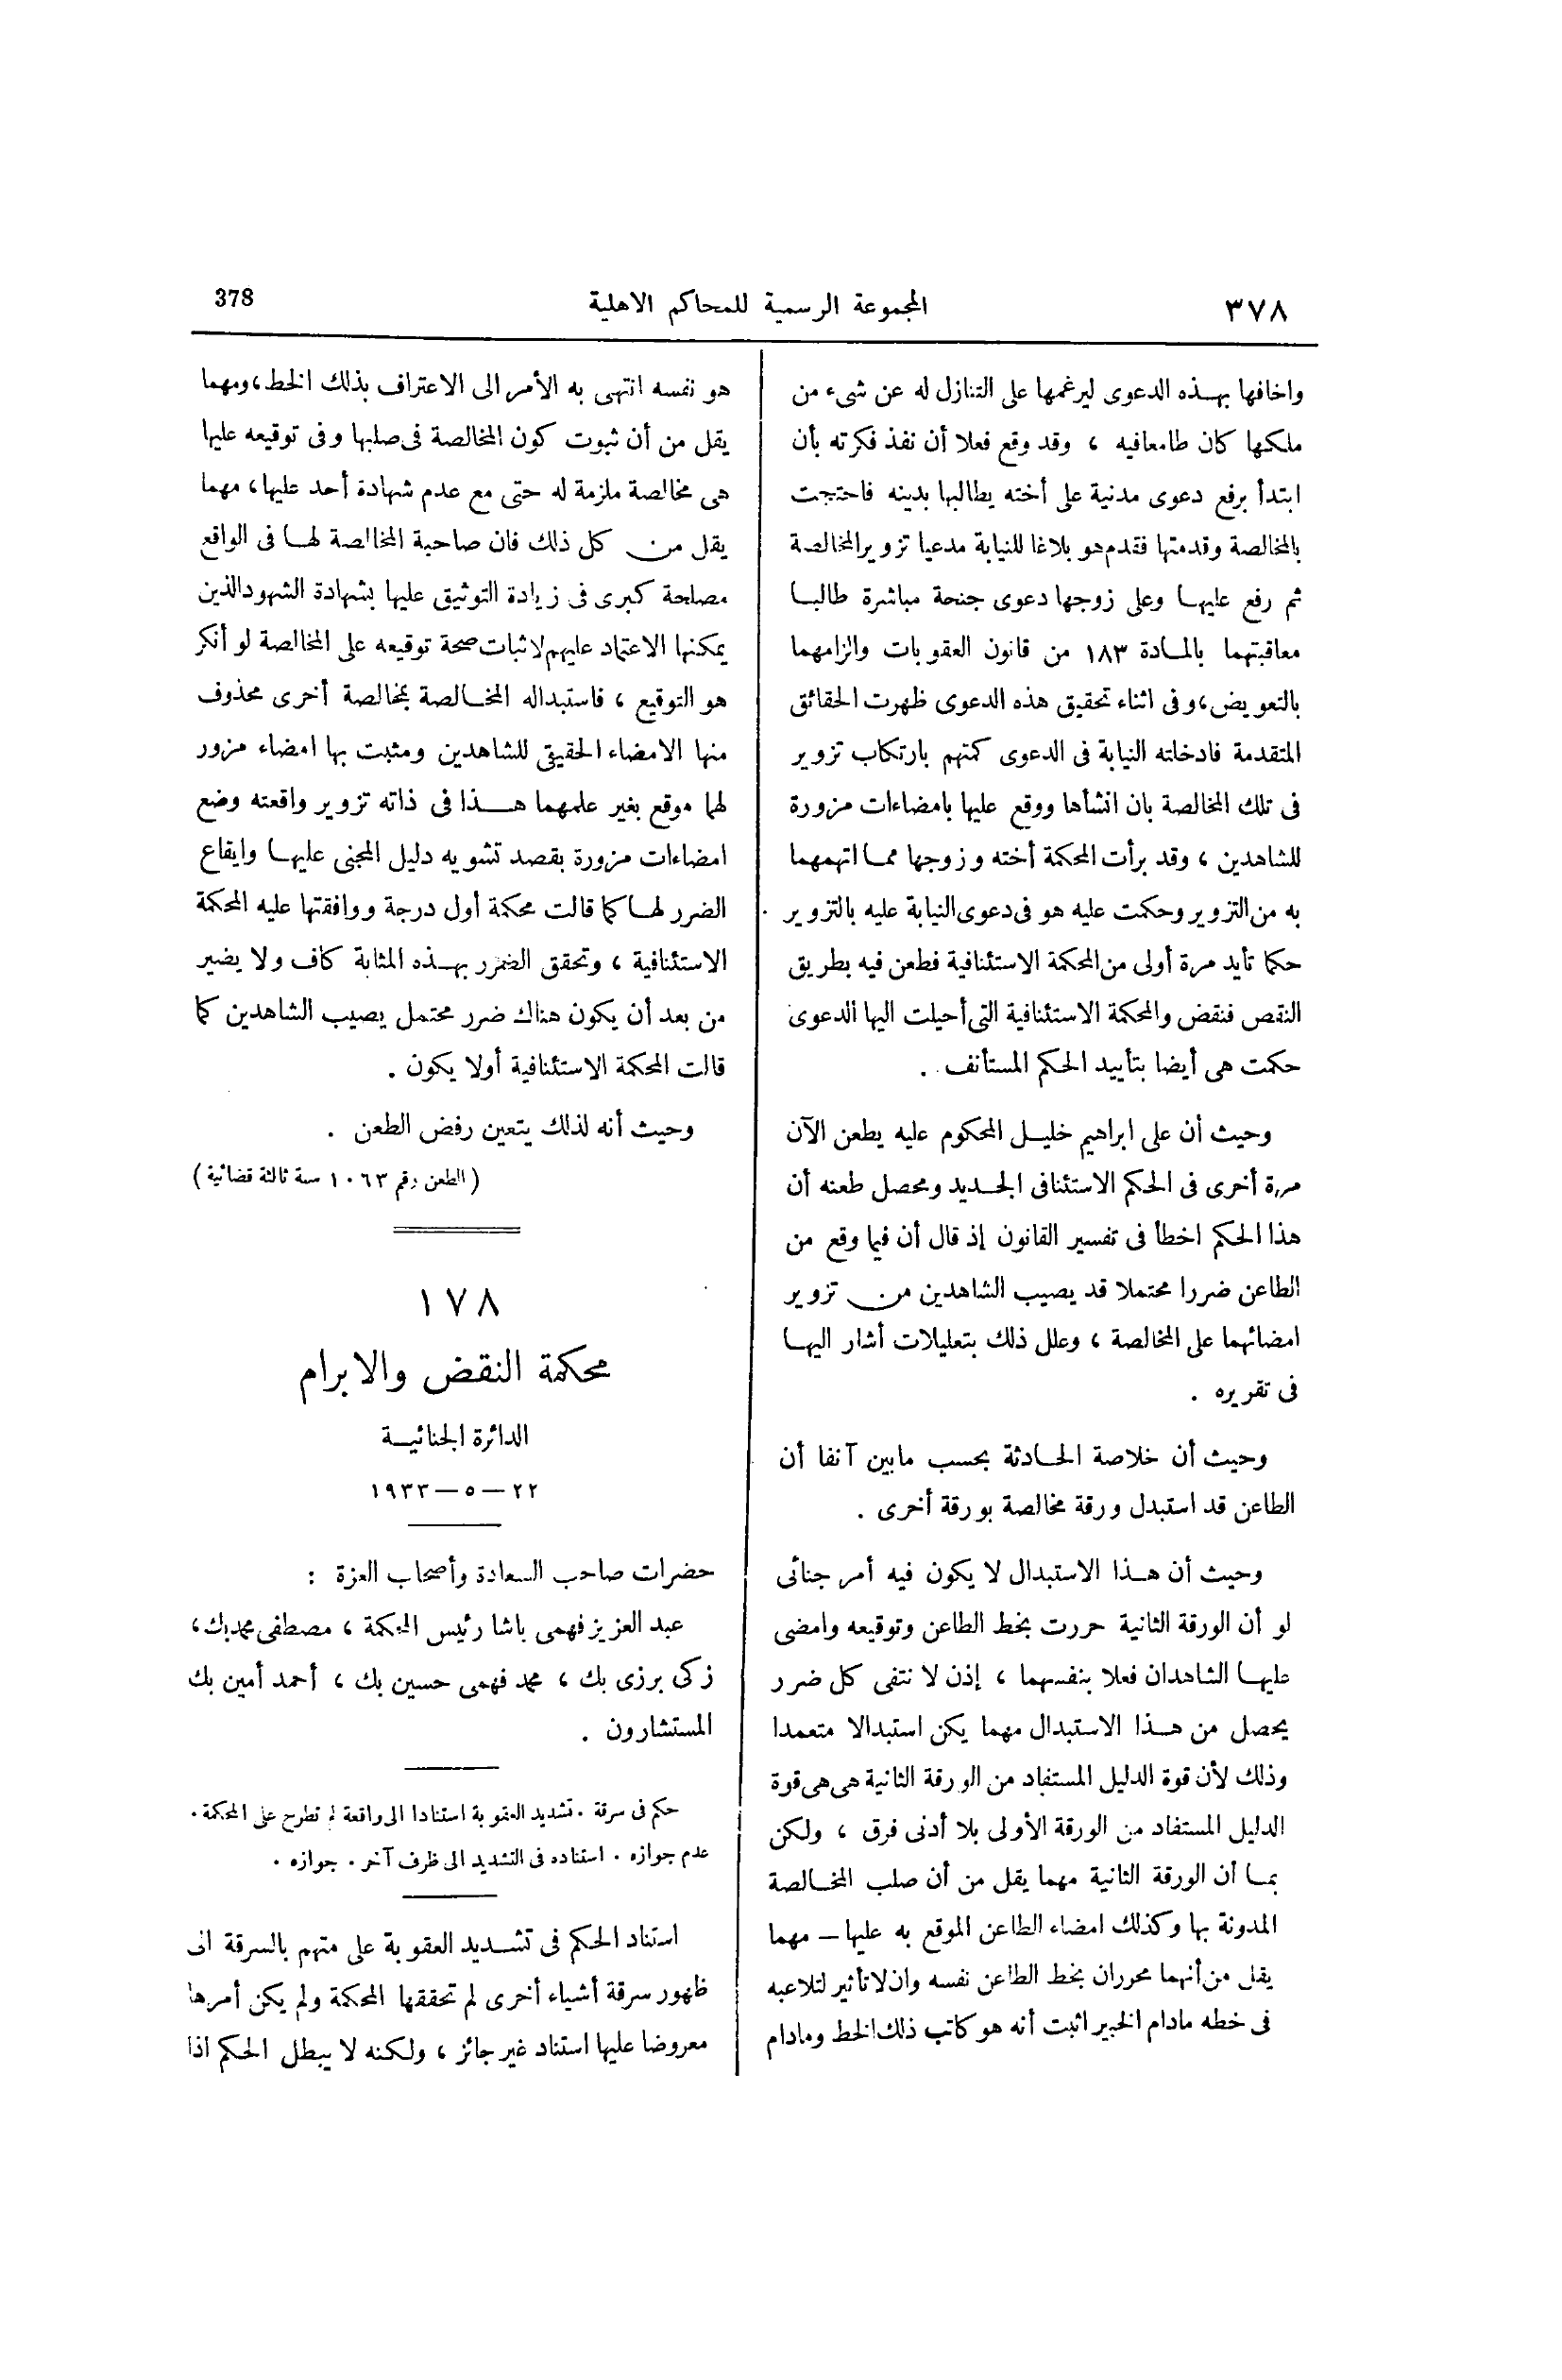 ٣٧٨
المجموعة الرسمية للمحاكم الاهلية
378
واخافها بهذه الدعوى ليرغمها على التنازل له عن شىء من
ملكها كان طامعا فيه ، وقد وقع فعلا أن نفذ فكرته بأن
ابتدأ برفع دعوى مدنية على أخته يطالبها بدينه فاحتجت
بالمخالصة وقدمتها فقدم هو بلاغا للنيابة مدعيا تزوير المخالصة
ثم رفع عليها وعلى زوجها دعوى جنحة مباشرة طالبا
معاقبتهما بالمادة ١٨٣ من قانون العقوبات والزامهما
بالتعويض ، وفى اثناء تحقيق هذه الدعوى ظهرت الحقائق
المتقدمة فادخلته النيابة فى الدعوى كمتهم بارتكاب تزوير
فى تلك المخالصة بان انشأها ووقع عليها بامضاءات مزورة
للشاهدين ، وقد برأت المحكمة أخته وزوجها مما اتهمهما
به من التزوير وحكمت عليه هو فى دعوى النيابة عليه بالتزوير
حكما تأيد مرة أولى من المحكمة الاستئنافية فطعن فيه بطريق
النقص فنقض والمحكمة الاستئنافية التى أحيلت اليها الدعوى
حكمت هى أيضا بتأييد الحكم المستأنف .
وحيث أن على ابراهيم خليل المحكوم عليه يطعن الآن
مرة أخرى فى الحكم الاستئنافى الجديد ومحصل طعنه أن
هذا الحكم اخطأ فى تفسير القانون إذ قال أن فيما وقع من
الطاعن ضررا محتملا قد يصيب الشاهدين من تزوير
امضائهما على المخالصة ، وعلل ذلك بتعليلات أشار اليها
فى تقريره .
وحيث أن خلاصة الحادثة بحسب مابين آنفا أن
الطاعن قد استبدل ورقة مخالصة بورقة أخرى .
وحيث أن هذا الاستبدال لا يكون فيه أمر جنائى
لو أن الورقة الثانية حررت بخط الطاعن وتوقيعه وامضى
عليها الشاهدان فعلا بنفسهما ، إذن لا نتفى كل ضرر
يحصل من هذا الاستبدال مهما يكن استبدالا متعمدا
وذلك لأن قوة الدليل المستفاد من الورقة الثانية هى هى قوة
الدليل المستفاد من الورقة الأولى بلا أدنى فرق ، ولكن
بما أن الورقة الثانية مهما يقل من أن صلب المخالصة
المدونة بها وكذلك امضاء الطاعن الموقع به عليها — مهما
يقل من أنهما محرران بخط الطاعن نفسه وان لا تأثير لتلاعبه
فى خطه مادام الخبير اثبت أنه هو كاتب ذلك الخط ومادام
هو نفسه انتهى به الأمر الى الاعتراف بذلك الخط ، ومهما
يقل من أن ثبوت كون المخالصة فى صلبها وفى توقيعه عليها
هى مخالصة ملزمة له حتى مع عدم شهادة أحد عليها ، مهما
يقل من كل ذلك فان صاحبة المخالصة لها فى الواقع
مصلحة كبرى فى زيادة التوثيق عليها بشهادة الشهود الذين
يمكنها الاعتماد عليهم لاثبات صحة توقيعه على المخالصة لو أنكر
هو التوقيع ، فاستبداله المخالصة بمخالصة أخرى محذوف
منها الامضاء الحقيقى للشاهدين ومثبت بها امضاء مزور
لهما موقع بغير علمهما هذا فى ذاته تزوير واقعته وضع
امضاءات مزورة بقصد تشويه دليل المجنى عليها وايقاع
الضرر لها كما قالت محكمة أول درجة ووافقتها عليه المحكمة
الاستئنافية ، وتحقق الضرر بهذه المثابة كاف ولا يضير
من بعد أن يكون هناك ضرر محتمل يصيب الشاهدين كما
قالت المحكمة الاستئنافية أولا يكون .
وحيث أنه لذلك يتعين رفض الطعن .
( الطعن رقم ١٠٦٣ سنة ثالثة قضائية )
١٧٨
محكمة النقض والابرام
الدائرة الجنائية
٢٢ — ٥ — ١٩٣٣
حضرات صاحب السعادة وأصحاب العزة :
عبد العزيز فهمى باشا رئيس المحكمة ، مصطفى محمد بك ،
زكى برزى بك ، محمد فهمى حسين بك ، أحمد أمين بك
المستشارون .
حكم فى سرقة . تشديد العقوبة استنادا الى واقعة لم تطرح على المحكمة .
عدم جوازه . استناده فى التشديد الى ظرف آخر . جوازه .
استناد الحكم فى تشديد العقوبة على متهم بالسرقة الى
ظهور سرقة أشياء أخرى لم تحققها المحكمة ولم يكن أمرها
معروضا عليها استناد غير جائز ، ولكنه لا يبطل الحكم اذا